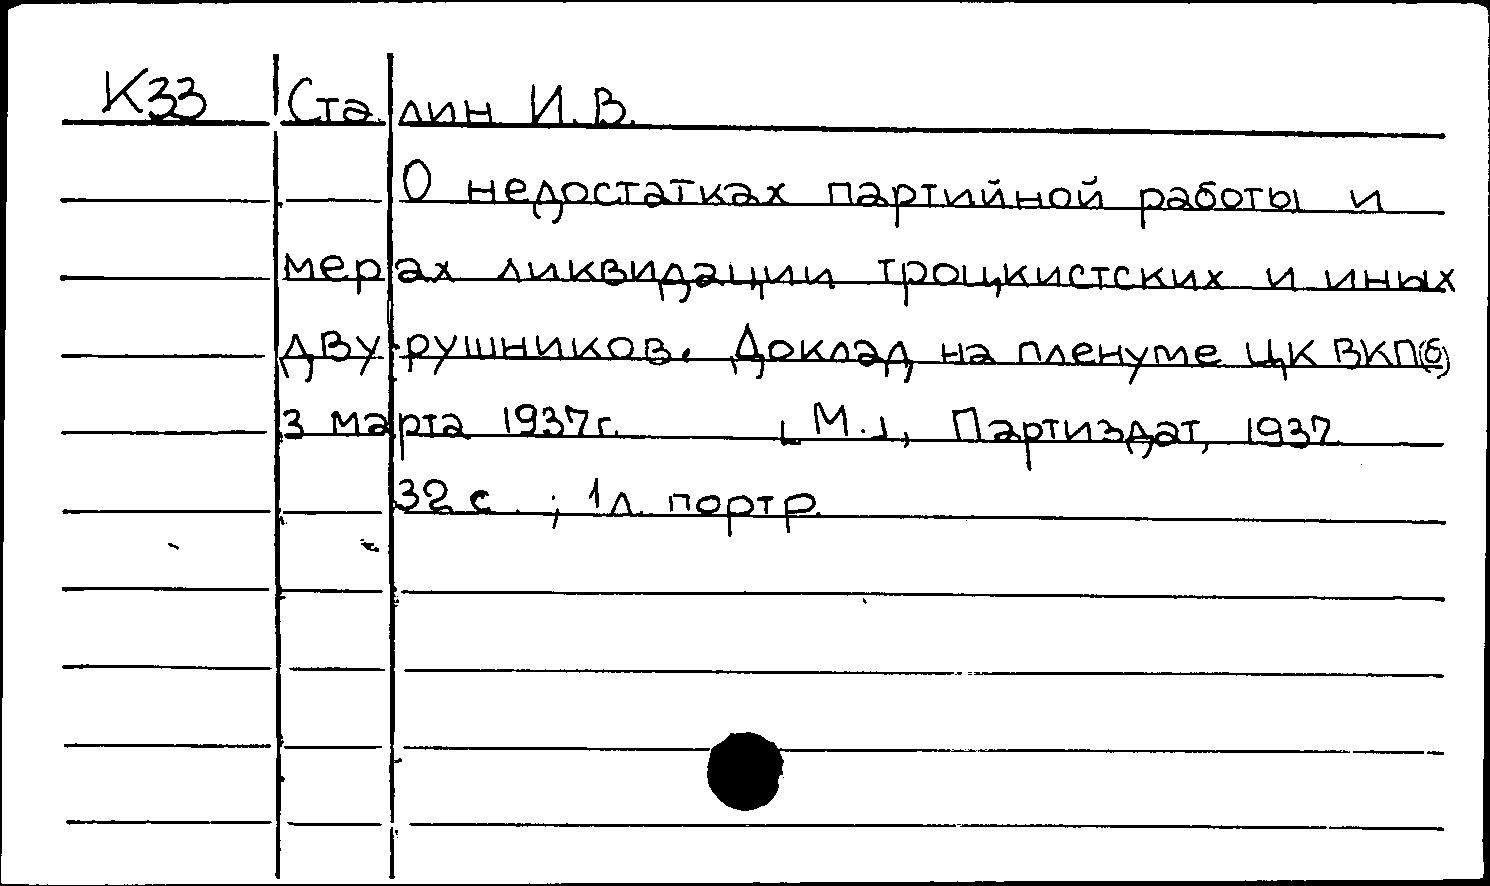 К33 Сталин И.В.
О недостатках партийной работы и
мерах ликвидации троцкистских и иных
двурушников. Доклад на пленуме ЦК ВКП(б)
3 марта 1937г. [М.], Партиздат, 1937
32 с. ; 1л. портр.